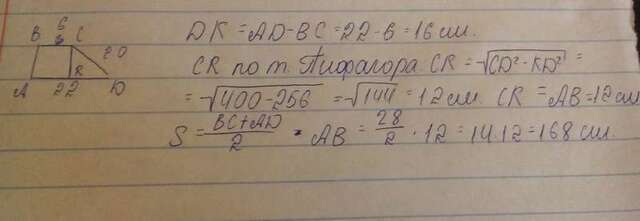 B 6 C 20
A 22 K D
DK = AD - BC = 22 - 6 = 16 см.
CK по т. Пифагора CK = √CD² - KD² =
= √400 - 256 = √144 = 12 см. CK = AB = 12 см
S = BC + AD / 2 · AB = 28 / 2 · 12 = 14 · 12 = 168 см.